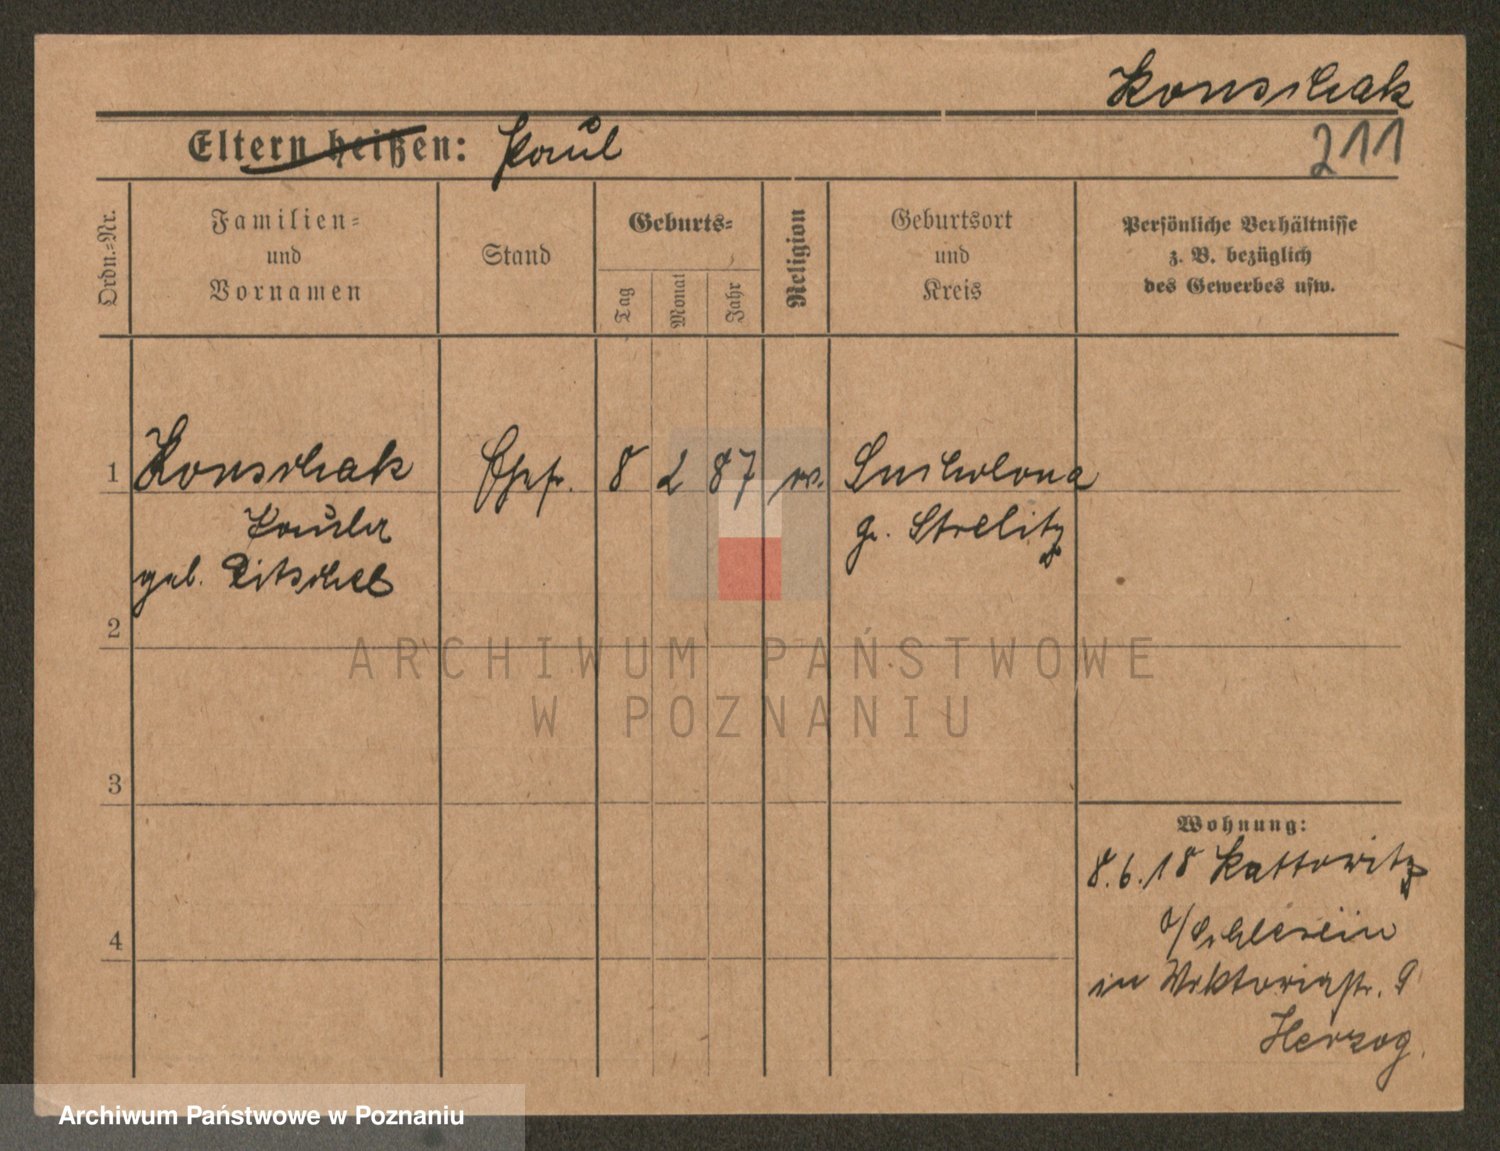 Konschak
Eltern heißen: Paul
211
Ordn.=Nr.
Familien=
und
Vornamen
Stand
Geburts=
Tag
Monat
Jahr
Religion
Geburtsort
und
Kreis
Persönliche Verhältnisse
z. B. bezüglich
des Gewerbes usw.
1 Konschak 8 2 87
gr. Strelitz
geb.
2
ARCHIWUM PAŃSTWOWE
W POZNANIU
3
Wohnung:
8.6.18 Kattowitz
4
o/Schlesein
in Viktoriastr. 9
Herzog.
Archiwum Państwowe w Poznaniu